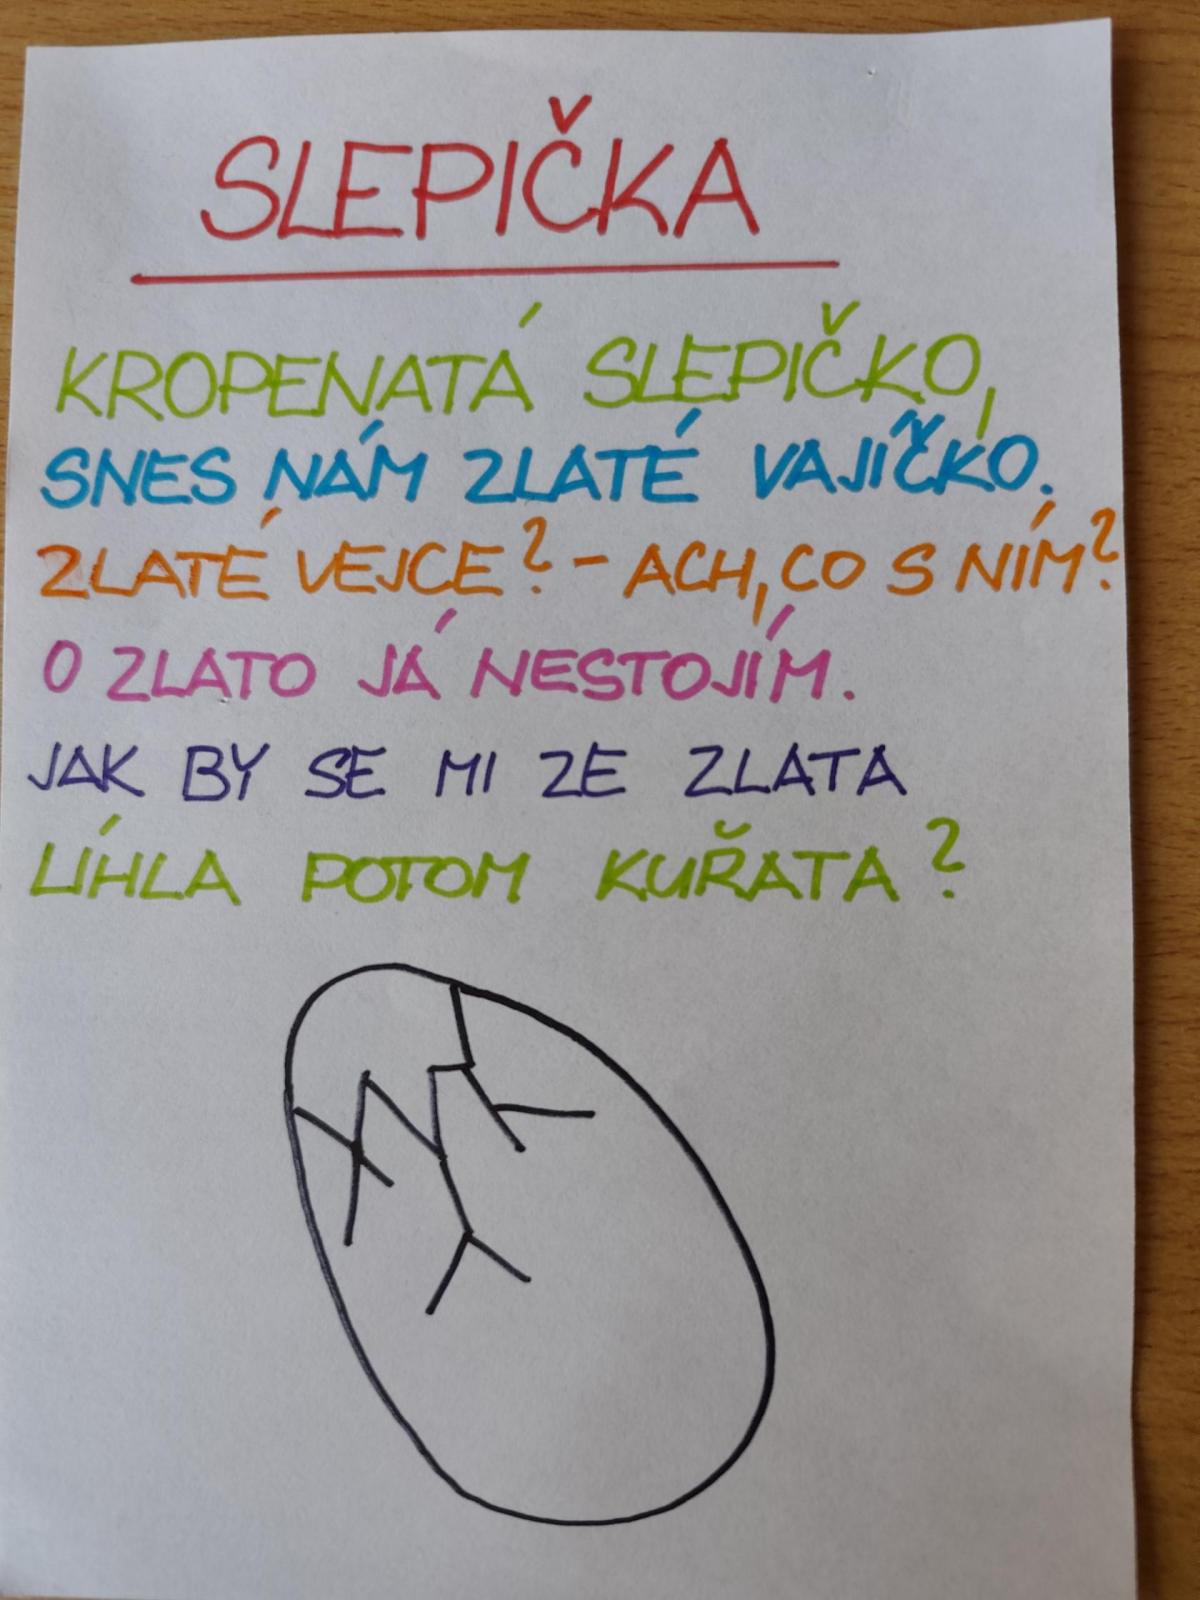 SLEPIČKA
KROPENATÁ SLEPIČKO,
SNES NÁM ZLATÉ VAJÍČKO.
ZLATÉ VEJCE? - ACH, CO S NÍM?
O ZLATO JÁ NESTOJÍM.
JAK BY SE MI ZE ZLATA
LÍHLA POTOM KUŘATA?